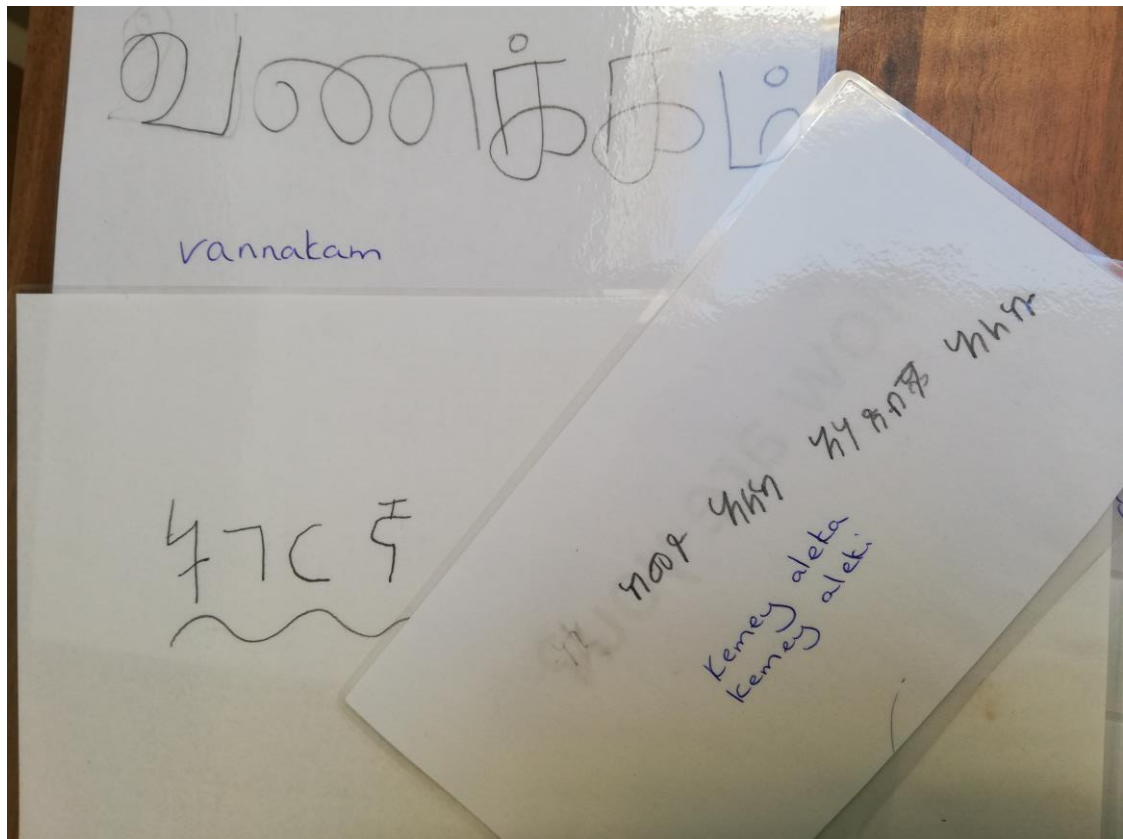 வணக்கம்
vannakam
ትግርኛ
ከመይ ኣለኻ
Kemey aleka
kemey aleki